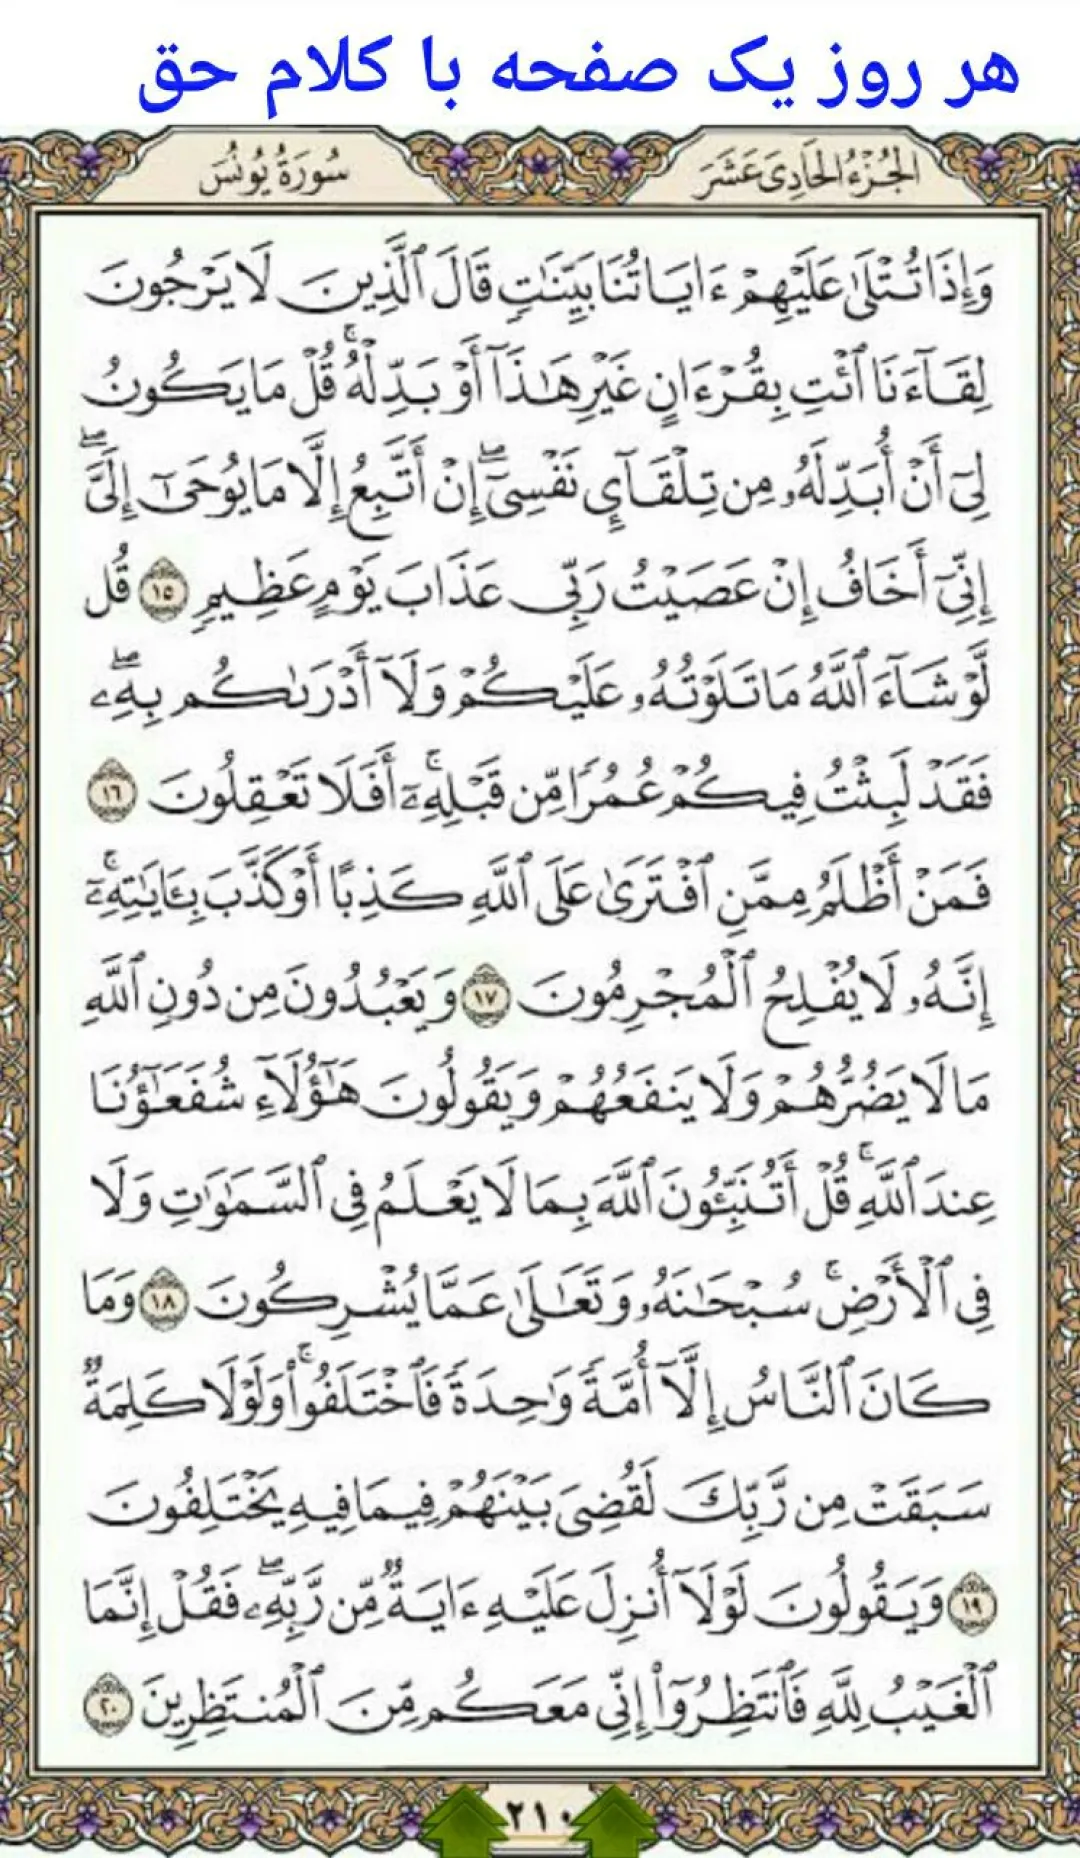 هر روز یک صفحه با کلام حق
الجُزْءُ الحَادِیَ عَشَرَ
سُورَةُ يُونُسَ
وَإِذَا تُتْلَىٰ عَلَيْهِمْ ءَايَاتُنَا بَيِّنَٰتٖ قَالَ ٱلَّذِينَ لَا يَرْجُونَ
لِقَآءَنَا ٱئْتِ بِقُرْءَانٍ غَيْرِ هَٰذَآ أَوْ بَدِّلْهُۚ قُلْ مَا يَكُونُ
لِىٓ أَنْ أُبَدِّلَهُۥ مِن تِلْقَآيِٕ نَفْسِىٓۖ إِنْ أَتَّبِعُ إِلَّا مَا يُوحَىٰٓ إِلَىَّۖ
إِنِّىٓ أَخَافُ إِنْ عَصَيْتُ رَبِّى عَذَابَ يَوْمٍ عَظِيمٖ ١٥ قُل
لَّوْ شَآءَ ٱللَّهُ مَا تَلَوْتُهُۥ عَلَيْكُمْ وَلَآ أَدْرَىٰكُم بِهِۦۖ
فَقَدْ لَبِثْتُ فِيكُمْ عُمُرٗا مِّن قَبْلِهِۦٓۚ أَفَلَا تَعْقِلُونَ ١٦
فَمَنْ أَظْلَمُ مِمَّنِ ٱفْتَرَىٰ عَلَى ٱللَّهِ كَذِبًا أَوْ كَذَّبَ بِـَٔايَٰتِهِۦٓۚ
إِنَّهُۥ لَا يُفْلِحُ ٱلْمُجْرِمُونَ ١٧ وَيَعْبُدُونَ مِن دُونِ ٱللَّهِ
مَا لَا يَضُرُّهُمْ وَلَا يَنفَعُهُمْ وَيَقُولُونَ هَٰٓؤُلَآءِ شُفَعَٰٓؤُنَا
عِندَ ٱللَّهِۚ قُلْ أَتُنَبِّـُٔونَ ٱللَّهَ بِمَا لَا يَعْلَمُ فِى ٱلسَّمَٰوَٰتِ وَلَا
فِى ٱلْأَرْضِۚ سُبْحَٰنَهُۥ وَتَعَٰلَىٰ عَمَّا يُشْرِكُونَ ١٨ وَمَا
كَانَ ٱلنَّاسُ إِلَّآ أُمَّةٗ وَٰحِدَةٗ فَٱخْتَلَفُوا۟ۚ وَلَوْلَا كَلِمَةٞ
سَبَقَتْ مِن رَّبِّكَ لَقُضِىَ بَيْنَهُمْ فِيمَا فِيهِ يَخْتَلِفُونَ
١٩ وَيَقُولُونَ لَوْلَآ أُنزِلَ عَلَيْهِ ءَايَةٞ مِّن رَّبِّهِۦۖ فَقُلْ إِنَّمَا
ٱلْغَيْبُ لِلَّهِ فَٱنتَظِرُوٓا۟ إِنِّى مَعَكُم مِّنَ ٱلْمُنتَظِرِينَ ٢٠
٢١٠